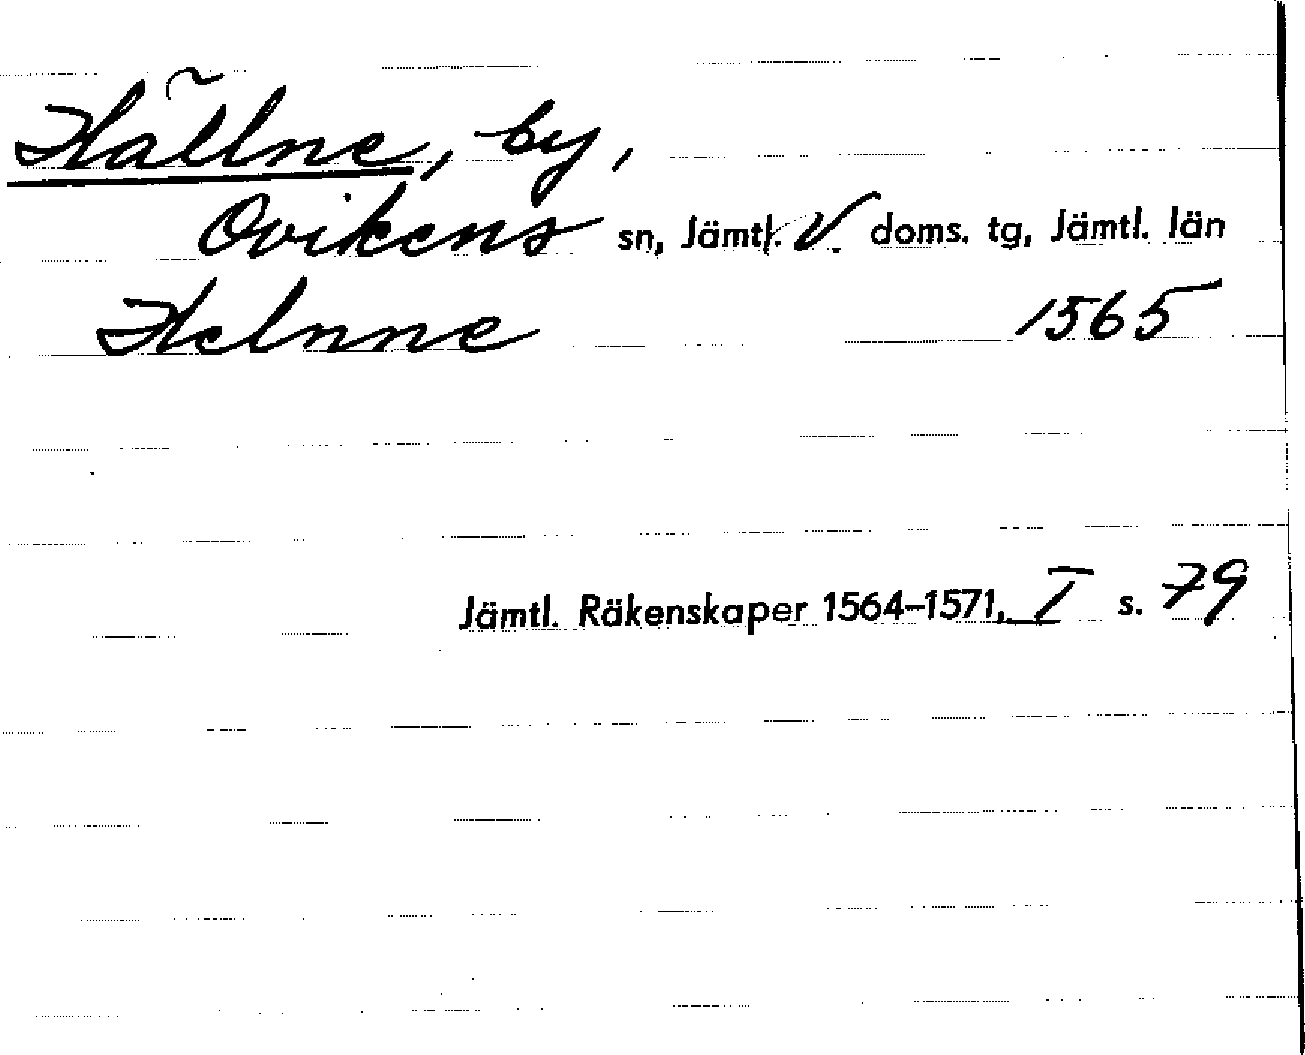 Hällne, by,
Ovikens sn, Jämtl. V. doms. tg, Jämtl. län
Helnne 1565
Jämtl. Räkenskaper 1564–1571, I s. 79